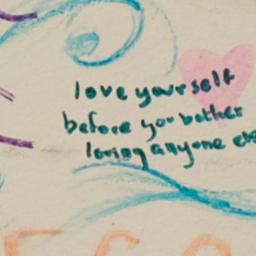 love yourself
before you bother
loving anyone els